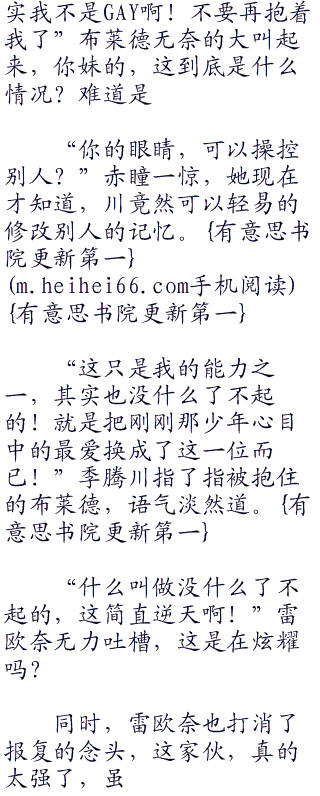 实我不是GAY啊！不要再抱着
我了”布莱德无奈的大叫起
来，你妹的，这到底是什么
情况？难道是
“你的眼睛，可以操控
别人？”赤瞳一惊，她现在
才知道，川竟然可以轻易的
修改别人的记忆。{有意思书
院更新第一}
(m.heihei66.com手机阅读)
{有意思书院更新第一}
“这只是我的能力之
一，其实也没什么了不起
的！就是把刚刚那少年心目
中的最爱换成了这一位而
已！”季腾川指了指被抱住
的布莱德，语气淡然道。{有
意思书院更新第一}
“什么叫做没什么了不
起的，这简直逆天啊！”雷
欧奈无力吐槽，这是在炫耀
吗？
同时，雷欧奈也打消了
报复的念头，这家伙，真的
太强了，虽